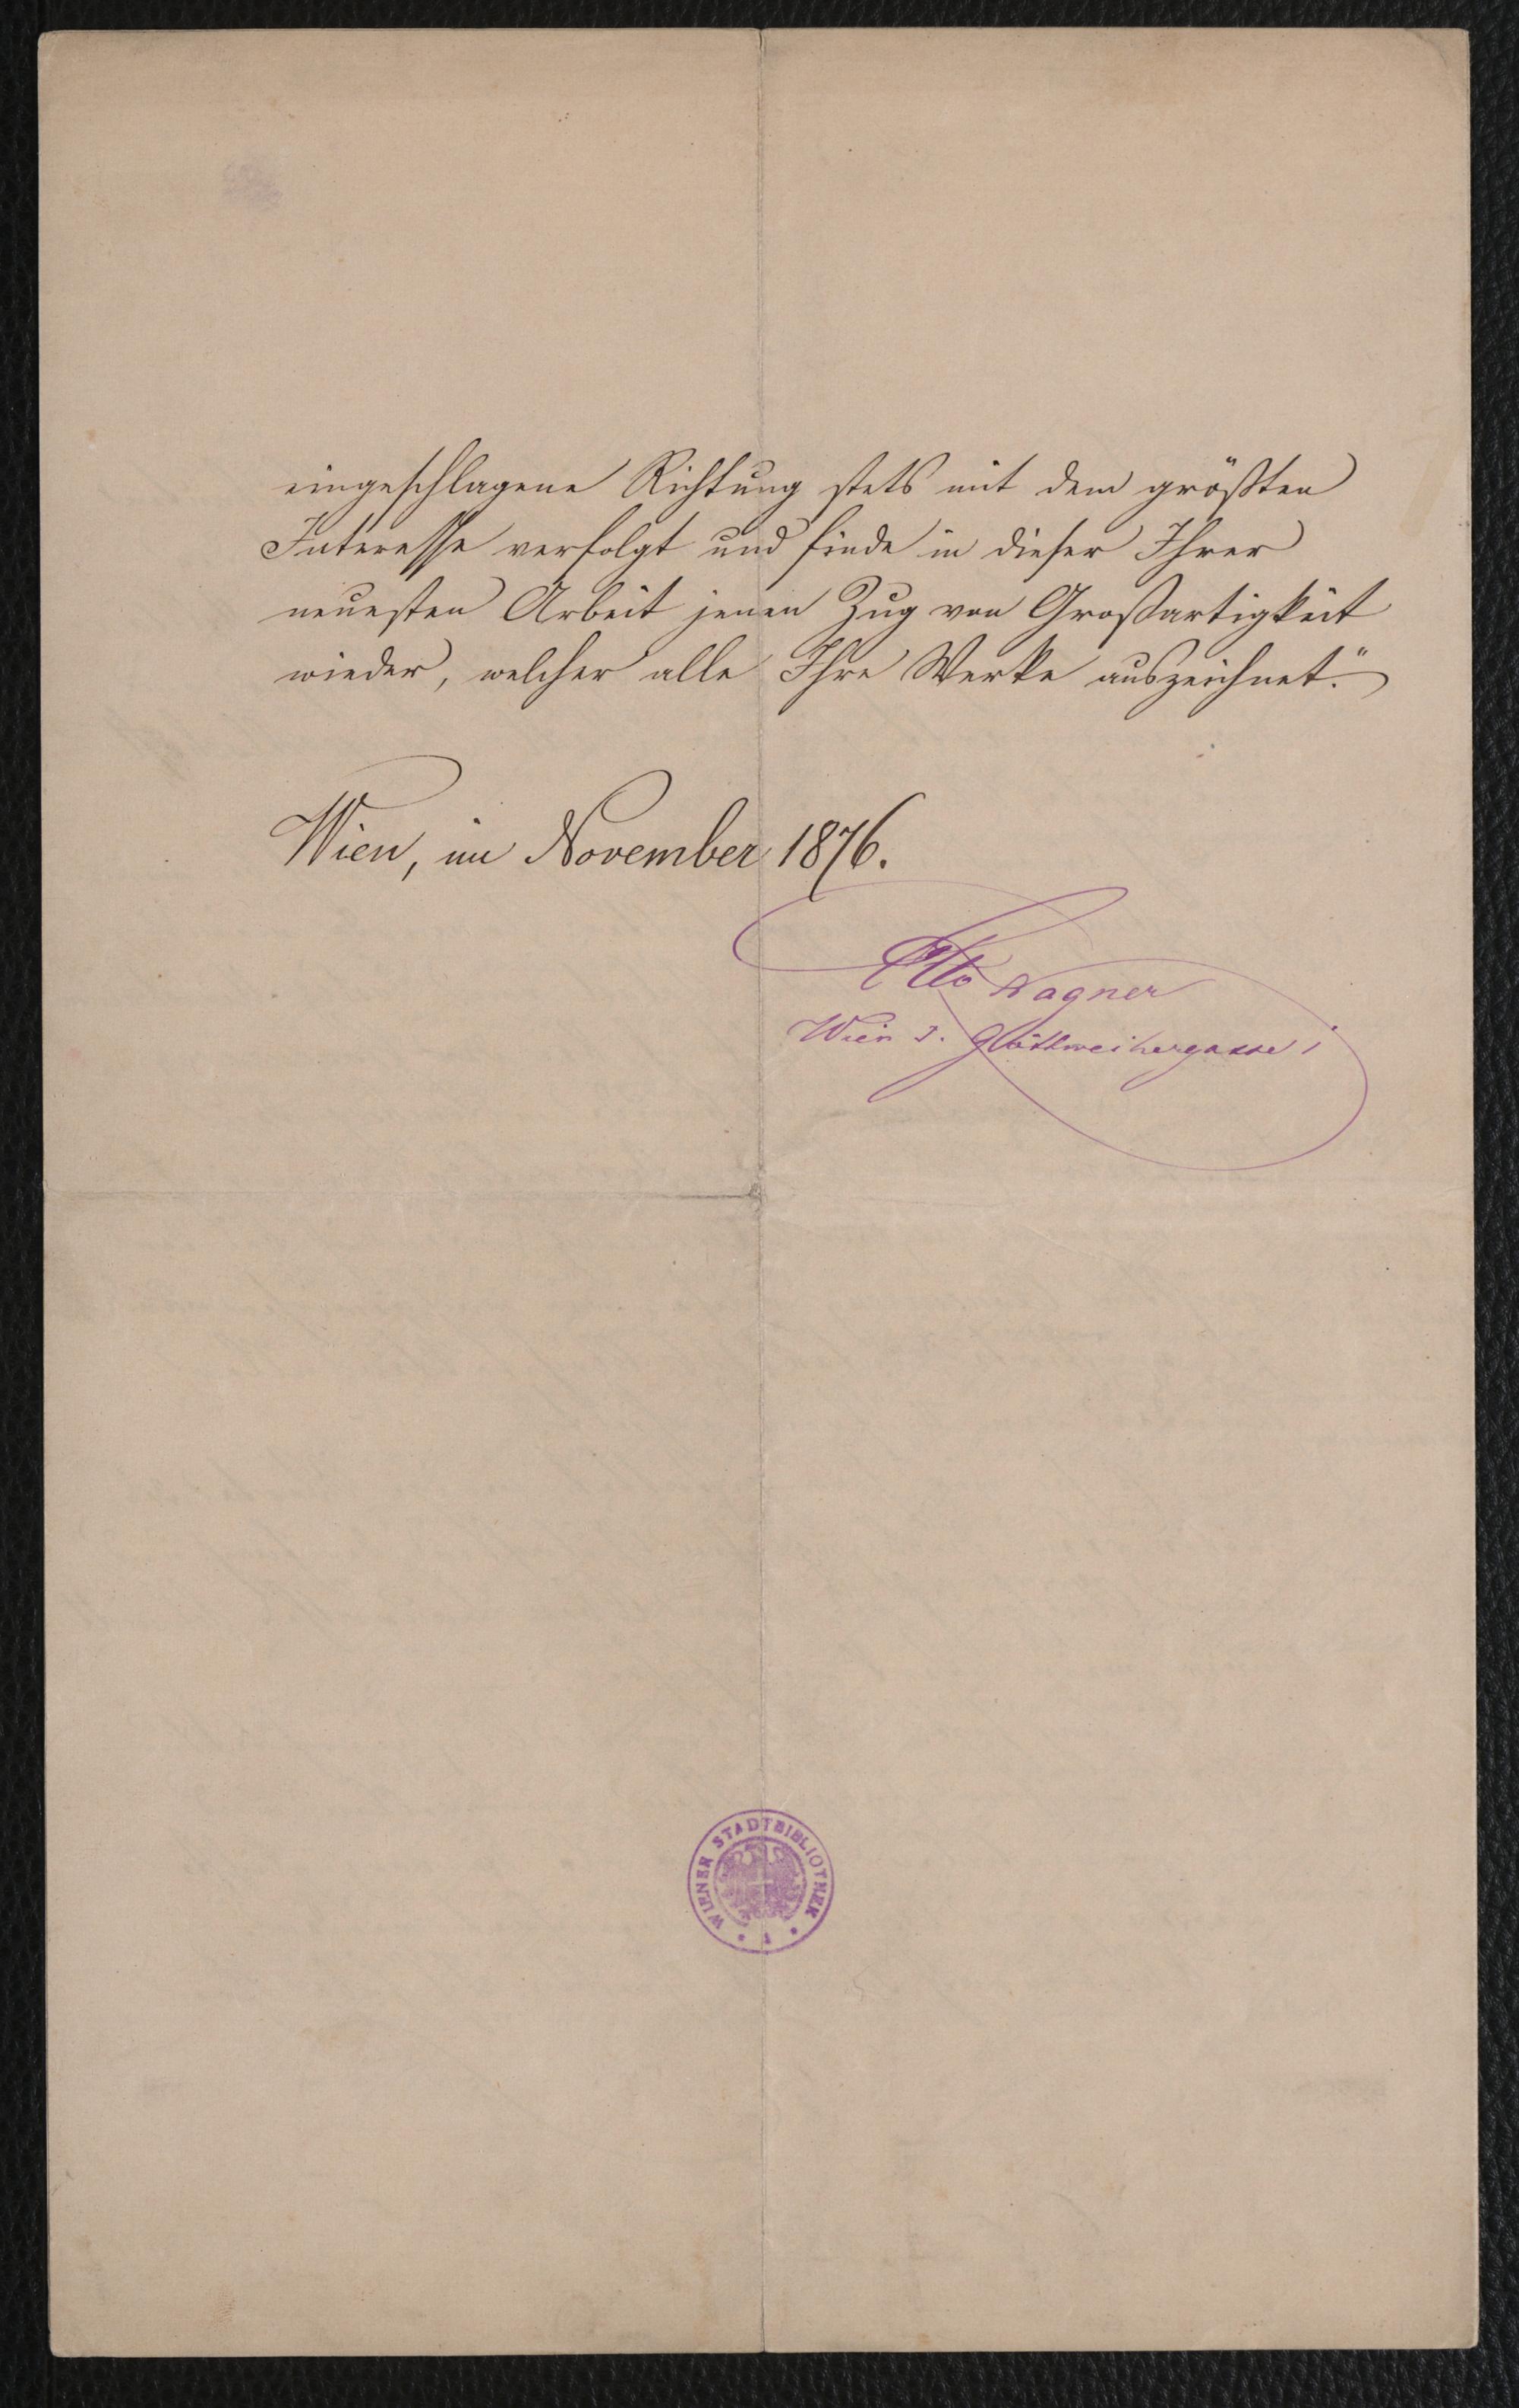 eingeschlagene Richtung stets mit dem größten
Interesse verfolgt und finde in dieser Ihrer
neuesten Arbeit jenen Zug von Großartigkeit
wieder, welcher alle Ihre Werke auszeichnet."
Wien, im November 1876.
Otto Wagner
Wien I. Göttweihergasse 1
WIENER STADTBIBLIOTHEK